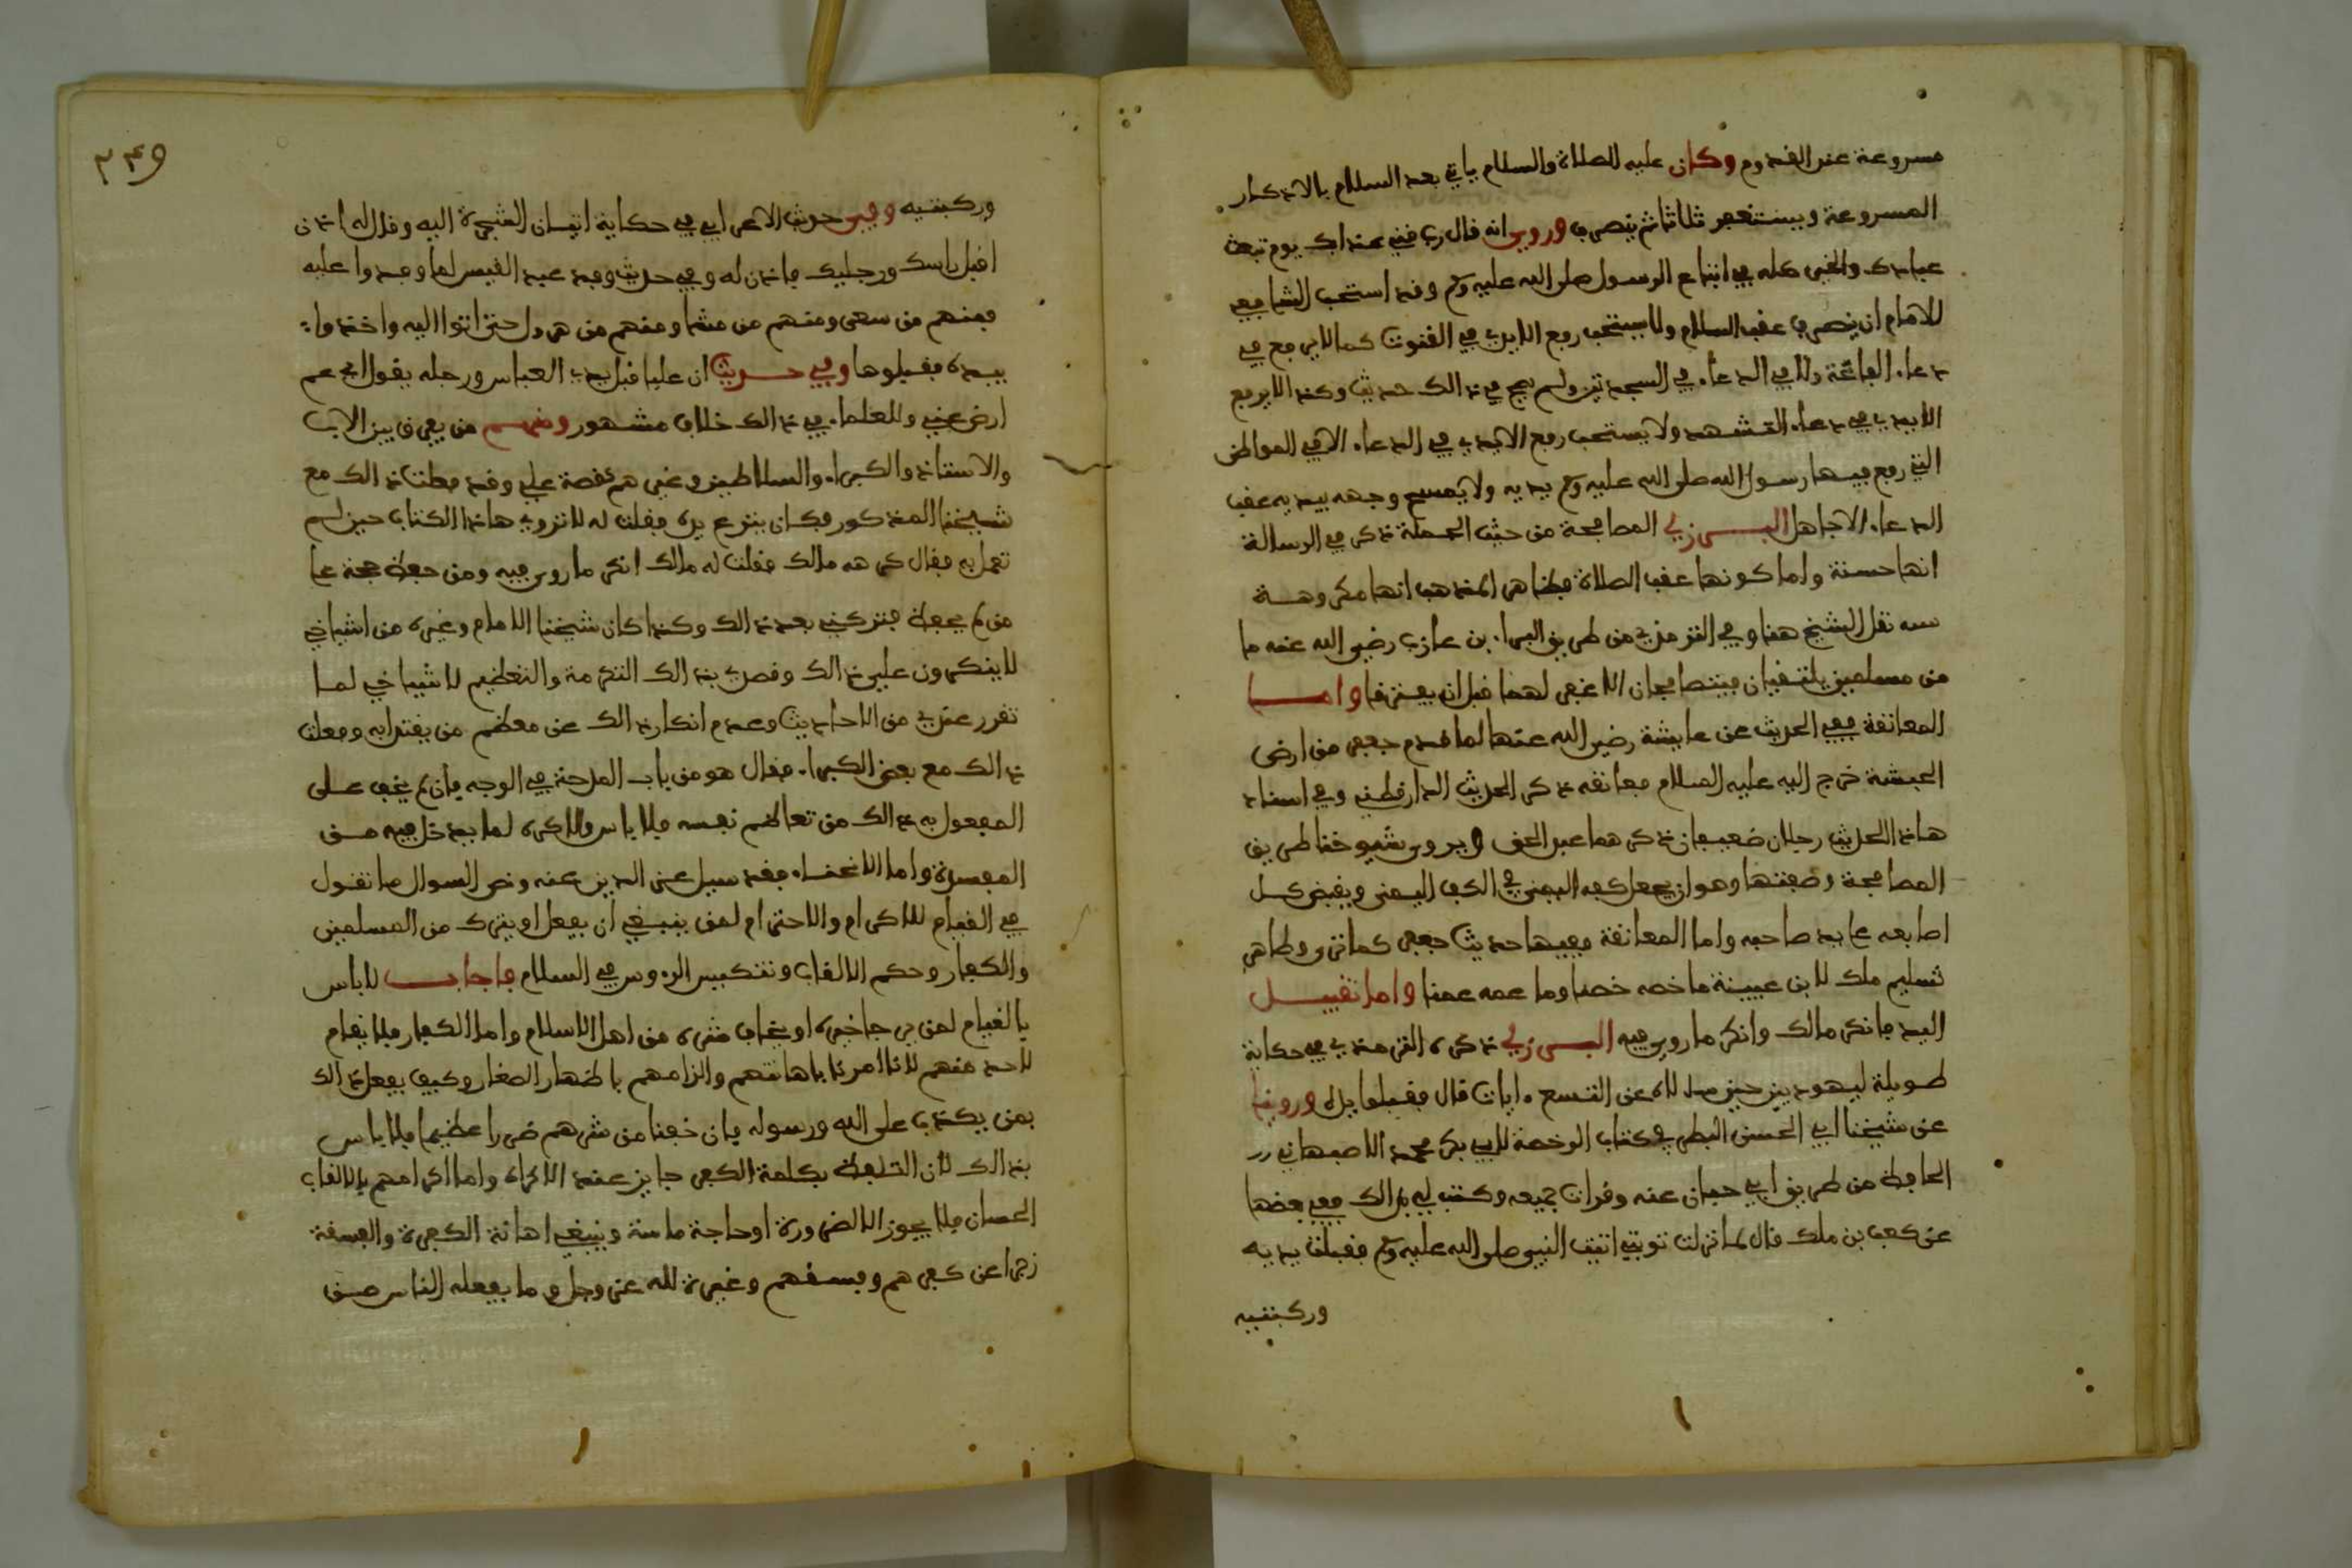 مسروعة عند القدوم وكان عليه الصلاة والسلام ياتي بعد السلام بالاذكار
المسروعة ويستغفر ثلاثا ثم ينصرف وروى انه قال رب قني عذابك يوم تبعث
عبادك والخير كله في اتباع الرسول صلى الله عليه وسلم وقد استحب الشافعي
للامام ان ينصرف عقب السلام ولا يستحب رفع الايدي في القنوت كما لا يرفع في
دعاء الفاتحة ولا في الدعاء في السجدتين ولم يصح في ذالك حديث وكذا لا يرفع
الايدي في دعاء التشهد ولا يستحب رفع الايدي في الدعاء الا في المواطن
التي رفع فيها رسول الله صلى الله عليه وسلم يديه ولا يمسح وجهه بيديه عقب
الدعاء الا جاهل البرزلي المصافحة من حيث الجملة ذكر في الرسالة
انها حسنة واما كونها عقب الصلاة فظاهر المذهب انها مكروهة
نقل الشيخ هنا وفي الترمذي من طريق البراء بن عازب رضي الله عنه ما
من مسلمين يلتقيان فيتصافحان الا غفر لهما قبل ان يفترقا واما
المعانقة ففي الحديث عن عايشة رضي الله عنها لما قدم جعفر من ارض
الحبشة خرج اليه عليه السلام فعانقه ذكر الحديث الدارقطني وفي اسناد
هاذا الحديث رجلان ضعيفان ذكرهما عبد الحق ويروي شيوخنا طريق
المصافحة وصفتها وهو ان يجعل كفه اليمنى في الكف اليمنى ويقبض كل
اصابعه على يد صاحبه واما المعانقة ففيها حديث جعفر كما ترى وظاهر
تسليم ملك لابن عيينة ما خصه خصنا وما عمه عمنا واما تقبيل
اليد فانكر مالك وانكر ما روي فيه البرزلي ذكره الترمذي في حكاية
طويلة ليهوديين حين سالاه عن التسع ءايات قال فقبلوا يده وروينا
عن شيخنا ابي الحسن البطرني كتاب الرخصة لابي بكر محمد الاصبهاني
الحافظ من طريق ابي حيان عنه وقرات جميعه وكتب لي بذالك ففي بعضها
عن كعب بن ملك قال لما نزلت توبتي اتيت النبي صلى الله عليه وسلم فقبلت يديه
وركبتيه
٣٤٩
وركبتيه وفي حديث الاعرابي في حكاية اتيان الشجرة اليه وقال له ائذن
اقبل راسك ورجليك فاذن له وفي حديث وفد عبد القيس لما وفدوا عليه
فمنهم من سعى ومنهم من مشا ومنهم من هرول حتى اتوا اليه واخذوا
بيده فقبلوها وفي حديث ان عليا قبل يد العباس ورجله يقول اي عم
ارض عني وللعلماء في ذالك خلاف مشهور ومنهم من يفرق بين الاب
والاستاذ والكبراء والسلاطين وغيرهم كقصة علي وقد فعلت ذالك مع
شيخنا المذكور فكان ينزع يده فقلت له لا تروي هاذا الكتاب حين لم
تعمل به فقال كرهه مالك فقلت له مالك انكر ما روي فيه ومن حفظ حجة على
من لم يحفظ فتركني بعد ذالك وكذا كان شيخنا الامام وغيره من اشياخي
لا ينكرون علي ذالك وقصدي بذالك التكرمة والتعظيم لاشياخي لما
تقرر عندي من الاحاديث وعدم انكار ذالك عن معظم من يقتدا به وفعلت
ذالك مع بعض الكبراء فقال هو من باب المدحة في الوجه فان لم يخف على
المفعول به ذالك من تعاظم نفسه فلا باس والاكره لما يدخل فيه من
المفسدة واما الانحناء فقد سيل عز الدين عنه ونص السوال ما تقول
في القيام للاكرام والاحترام لمن ينبغي ان يفعل او يترك من المسلمين
والكفار وحكم الالقاب وتنكيس الروس في السلام فاجاب لا باس
بالقيام لمن يرجا خيره او يخاف شره من اهل الاسلام واما الكفار فلا يقام
لاحد منهم لانا امرنا باهانتهم والزامهم باظهار الصغار وكيف يفعل ذالك
بمن يكذب على الله ورسوله فان خفنا من شرهم ضررا عظيما فلا باس
بذالك لان التلفظ بكلمة الكفر جايز عند الاكراه واما اكرامهم بالالقاب
الحسان فلا يجوز الا لضرورة او حاجة ماسة وينبغي اهانة الكفرة والفسقة
زجرا عن كفرهم وفسقهم وغيرة لله عز وجل وما يفعله الناس من